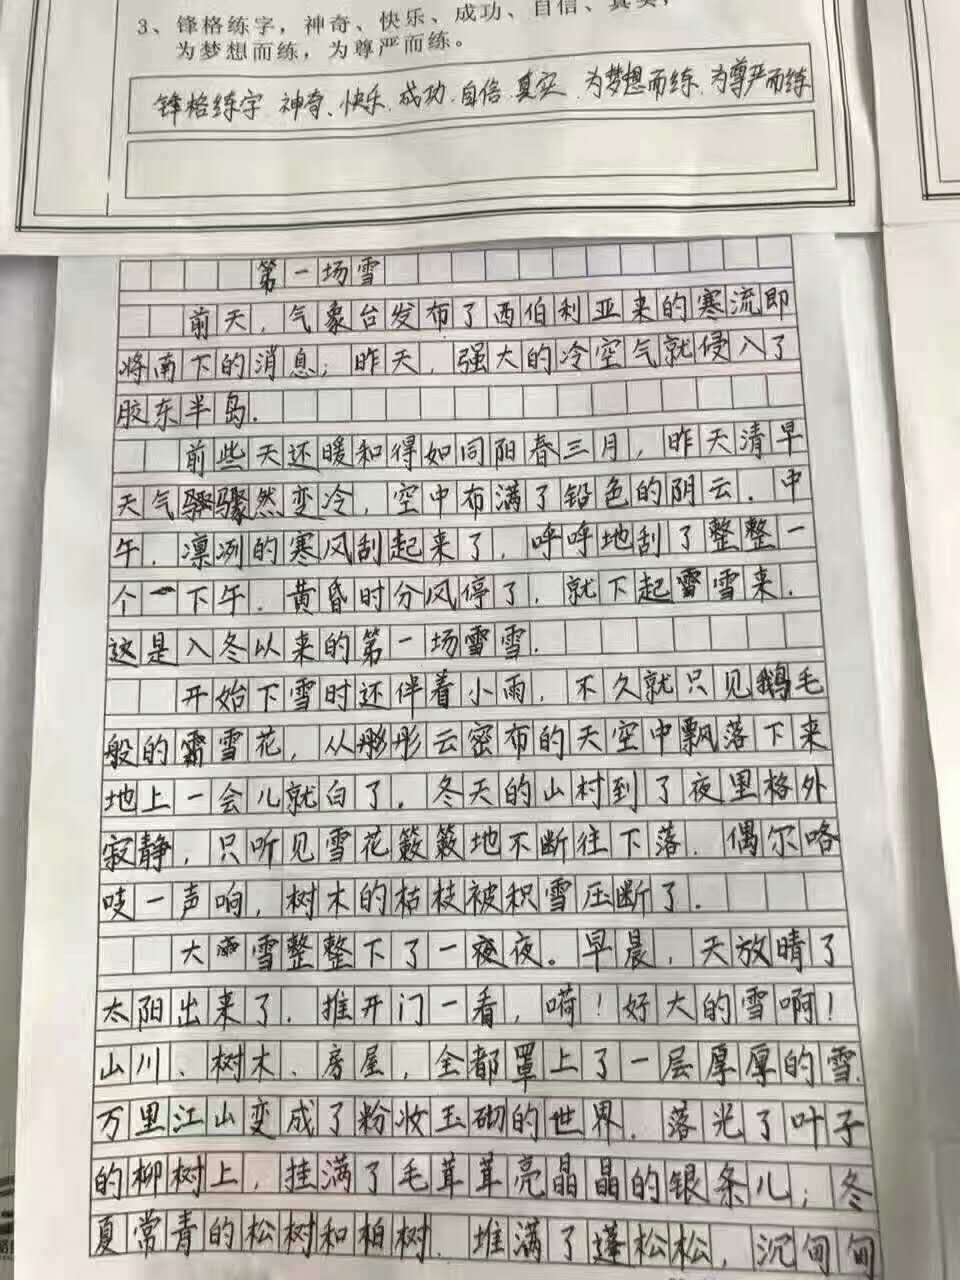 3、锋格练字，神奇、快乐、成功、自信、真实，
为梦想而练，为尊严而练。
锋格练字.神奇、快乐.成功.自信.真实.为梦想而练.为尊严而练
第一场雪
前天，气象台发布了西伯利亚来的寒流即
将南下的消息；昨天，强大的冷空气就侵入了
胶东半岛.
前些天还暖和得如同阳春三月，昨天清早
天气骤骤然变冷，空中布满了铅色的阴云.中
午，凛冽的寒风刮起来了，呼呼地刮了整整一
个一下午.黄昏时分风停了，就下起雪雪来.
这是入冬以来的第一场雪雪.
开始下雪时还伴着小雨，不久就只见鹅毛
般的雪花，从彤彤云密布的天空中飘落下来
地上一会儿就白了.冬天的山村到了夜里格外
寂静，只听见雪花簌簌地不断往下落.偶尔咯
吱一声响，树木的枯枝被积雪压断了.
大雪整整下了一夜夜。早晨，天放晴了
太阳出来了.推开门一看，嗬！好大的雪啊！
山川、树木、房屋，全都罩上了一层厚厚的雪.
万里江山变成了粉妆玉砌的世界.落光了叶子
的柳树上，挂满了毛茸茸亮晶晶的银条儿；冬
夏常青的松树和柏树.堆满了蓬松松，沉甸甸